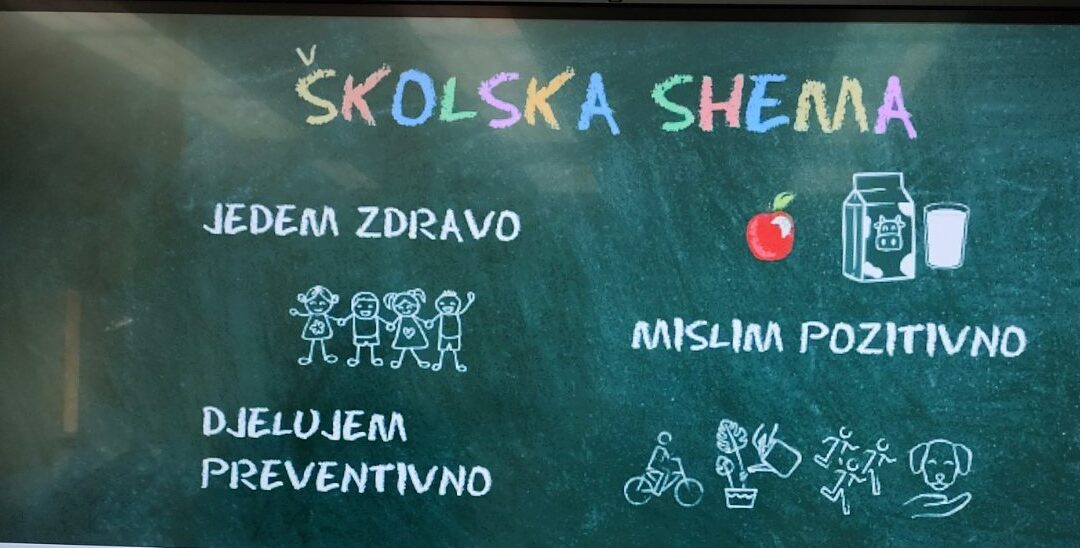 ŠKOLSKA SHEMA
JEDEM ZDRAVO
MISLIM POZITIVNO
DJELUJEM
PREVENTIVNO